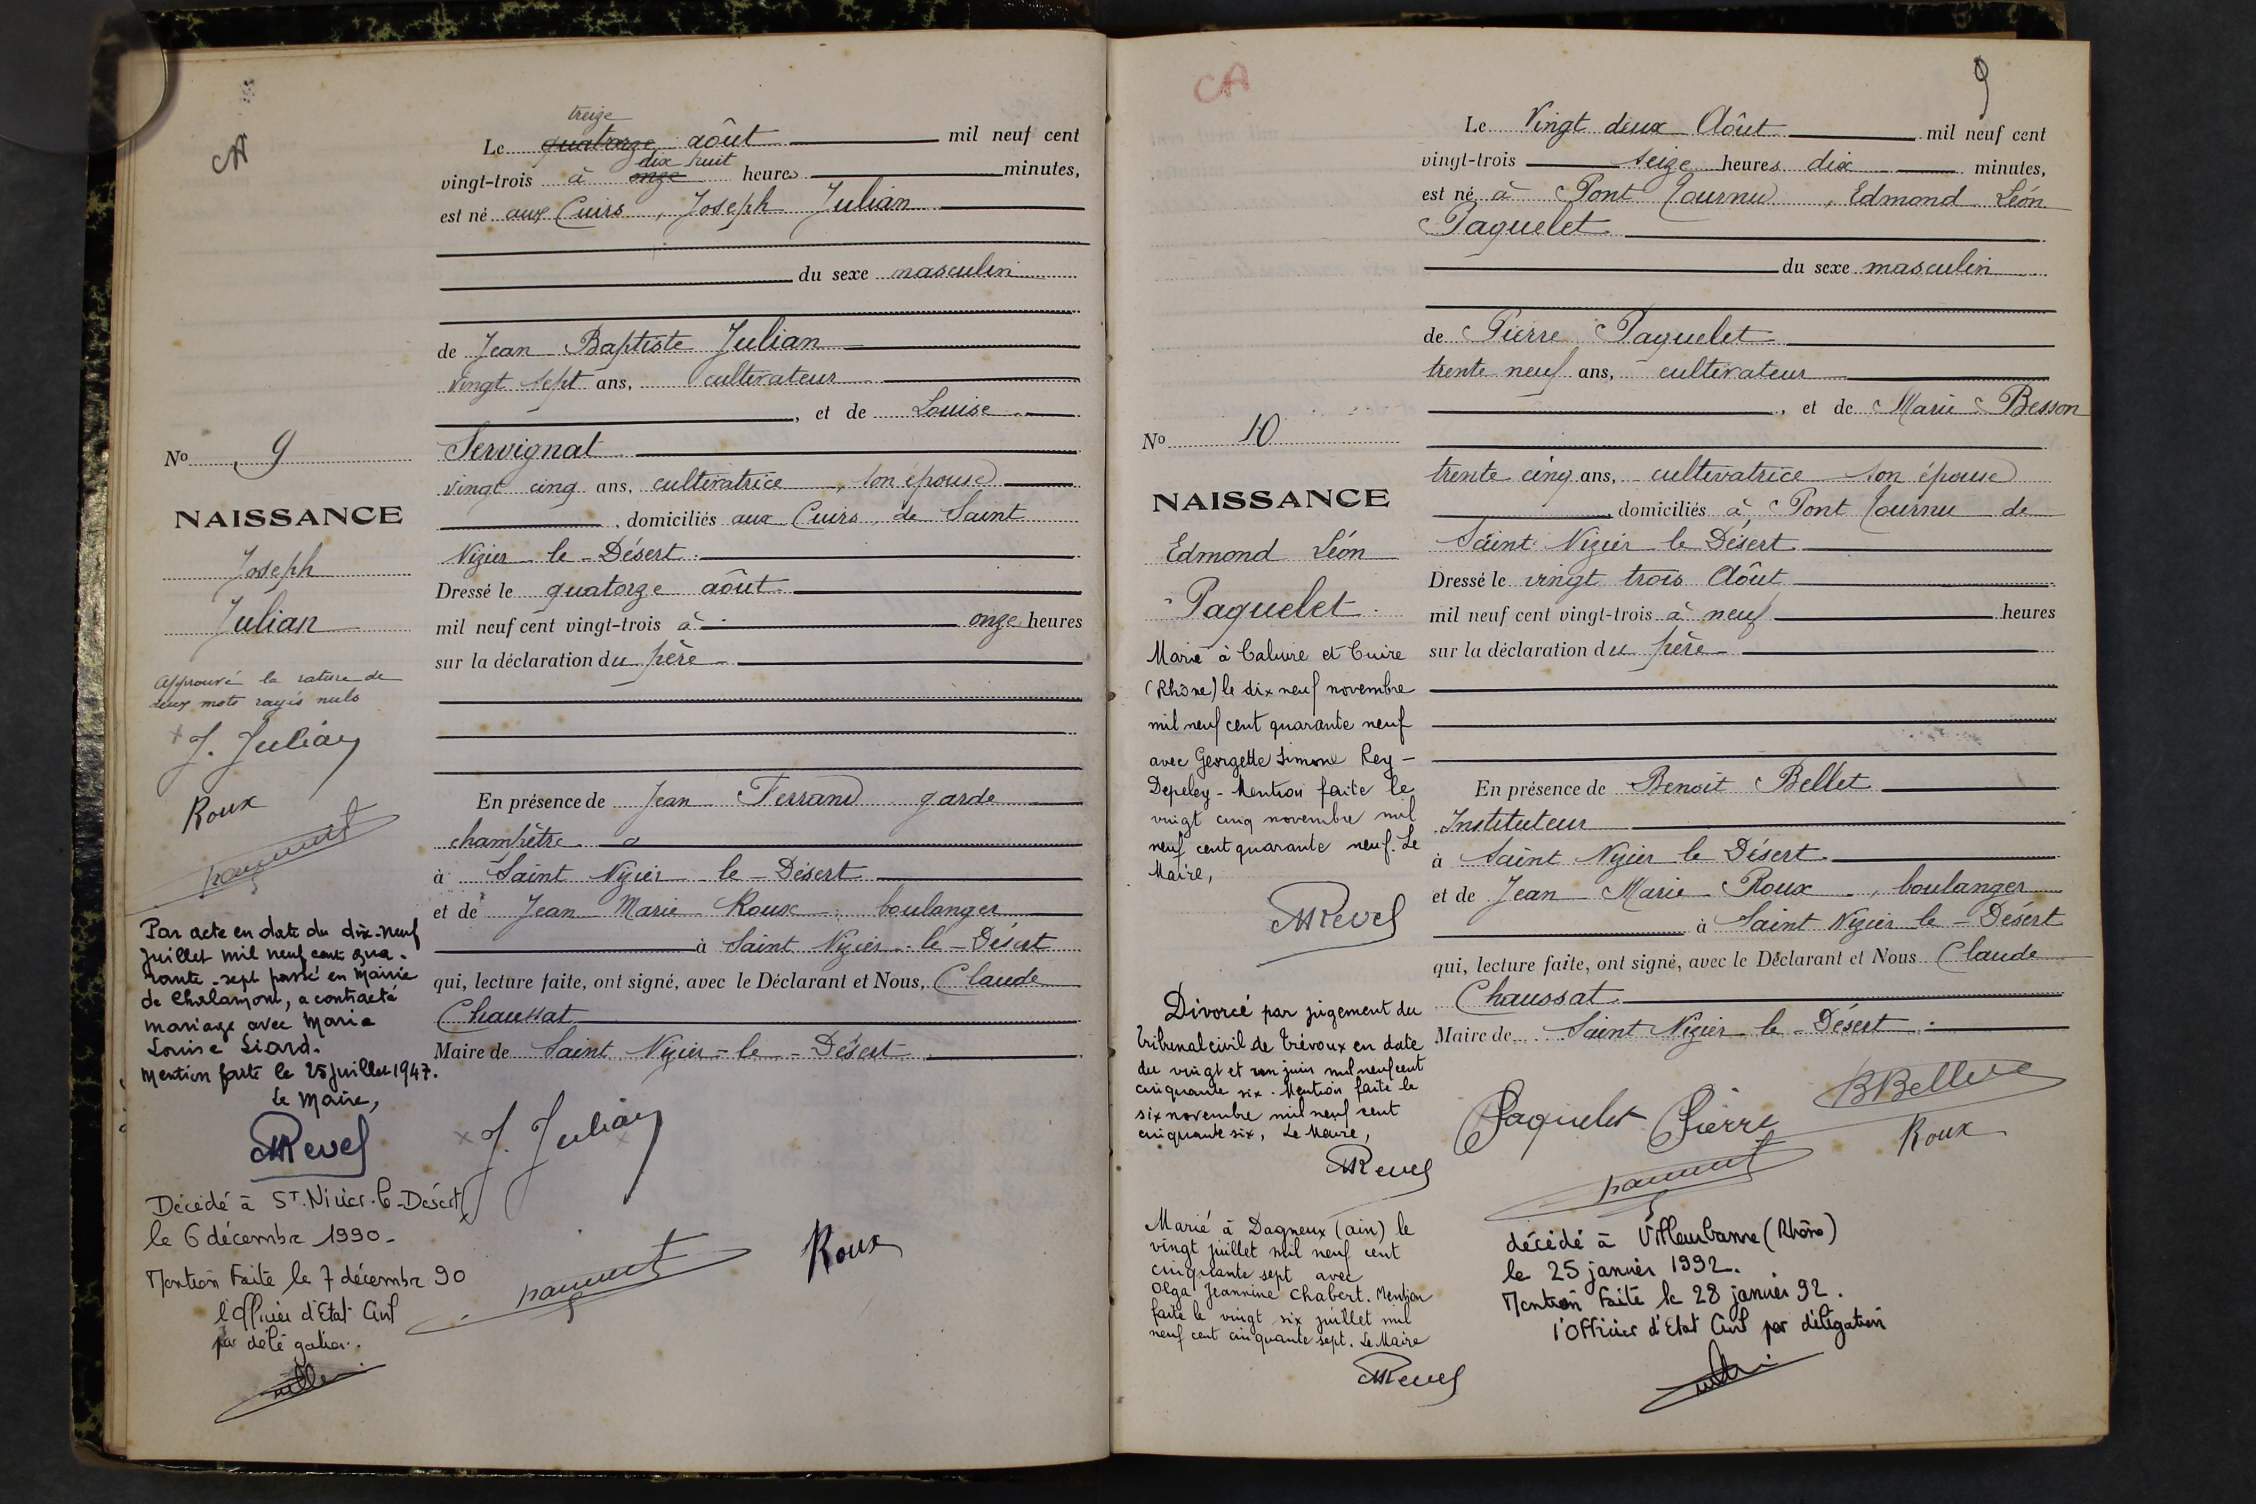 CA
treize
Le quatorze août mil neuf cent
dix huit
vingt-trois à onze heures minutes,
est né aux Cuirs, Joseph Julian
du sexe masculin
de Jean Baptiste Julian
vingt sept ans, cultivateur
, et de Louise
Servignat
vingt cinq ans, cultivatrice, son épouse
, domiciliés aux Cuirs, de Saint
Nizier le Désert.
Dressé le quatorze août
mil neuf cent vingt-trois à onze heures
sur la déclaration du père
En présence de Jean Ferrand garde
champêtre
à Saint Nizier le Désert
et de Jean Marie Roux, boulanger
à Saint Nizier le Désert
qui, lecture faite, ont signé, avec le Déclarant et Nous, Claude
Chaussat
Maire de Saint Nizier-le-Désert
J. Julian
Roux
No 9
NAISSANCE
Joseph
Julian
Approuvé la rature de
deux mots rayés nuls
J. Julian
Roux
Par acte en date du dix-neuf
Juillet mil neuf cent qua-
rante-sept passé en Mairie
de Chalamont, a contracté
mariage avec Marie
Louise Liard.
Mention faite le 25 juillet 1947.
Le Maire,
Revel
Décédé à St. Nizier-le-Désert
le 6 décembre 1990-
Mention Faite le 7 décembre 90
l'Officier d'Etat Civil
par délégation.
CA
9
Le Vingt deux Août mil neuf cent
vingt-trois seize heures dix minutes,
est né à Pont Tournu, Edmond Léon
Paquelet
du sexe masculin
de Pierre Paquelet
trente neuf ans, cultivateur
, et de Marie Besson
trente cinq ans, cultivatrice son épouse
, domiciliés à Pont Tournu de
Saint Nizier le Désert
Dressé le vingt trois Août
mil neuf cent vingt-trois à neuf heures
sur la déclaration du père
En présence de Benoît Bellet
Instituteur
à Saint Nizier le Désert.
et de Jean Marie Roux, boulanger
à Saint Nizier le Désert
qui, lecture faite, ont signé, avec le Déclarant et Nous Claude
Chaussat
Maire de Saint Nizier le Désert.
Paquelet Pierre
BBellet
Roux
décédé à Villeurbanne (Rhône)
le 25 janvier 1992.
Mention Faite le 28 janvier 92.
l'Officier d'Etat Civil par délégation
No 10
NAISSANCE
Edmond Léon
Paquelet
Marié à Caluire et Cuire
(Rhône) le dix neuf novembre
mil neuf cent quarante neuf
avec Georgette Simone Rey-
Depeley - Mention faite le
vingt cinq novembre mil
neuf cent quarante neuf. Le
Maire,
Revel
Divorcé par jugement du
Tribunal civil de Trévoux en date
du vingt et un juin mil neuf cent
cinquante six. Mention faite le
six novembre mil neuf cent
cinquante six, Le Maire,
Revel
Marié à Dagneux (ain) le
vingt juillet mil neuf cent
cinquante sept avec
Olga Jeannine Chabert. Mention
faite le vingt six juillet mil
neuf cent cinquante sept. Le Maire
Revel